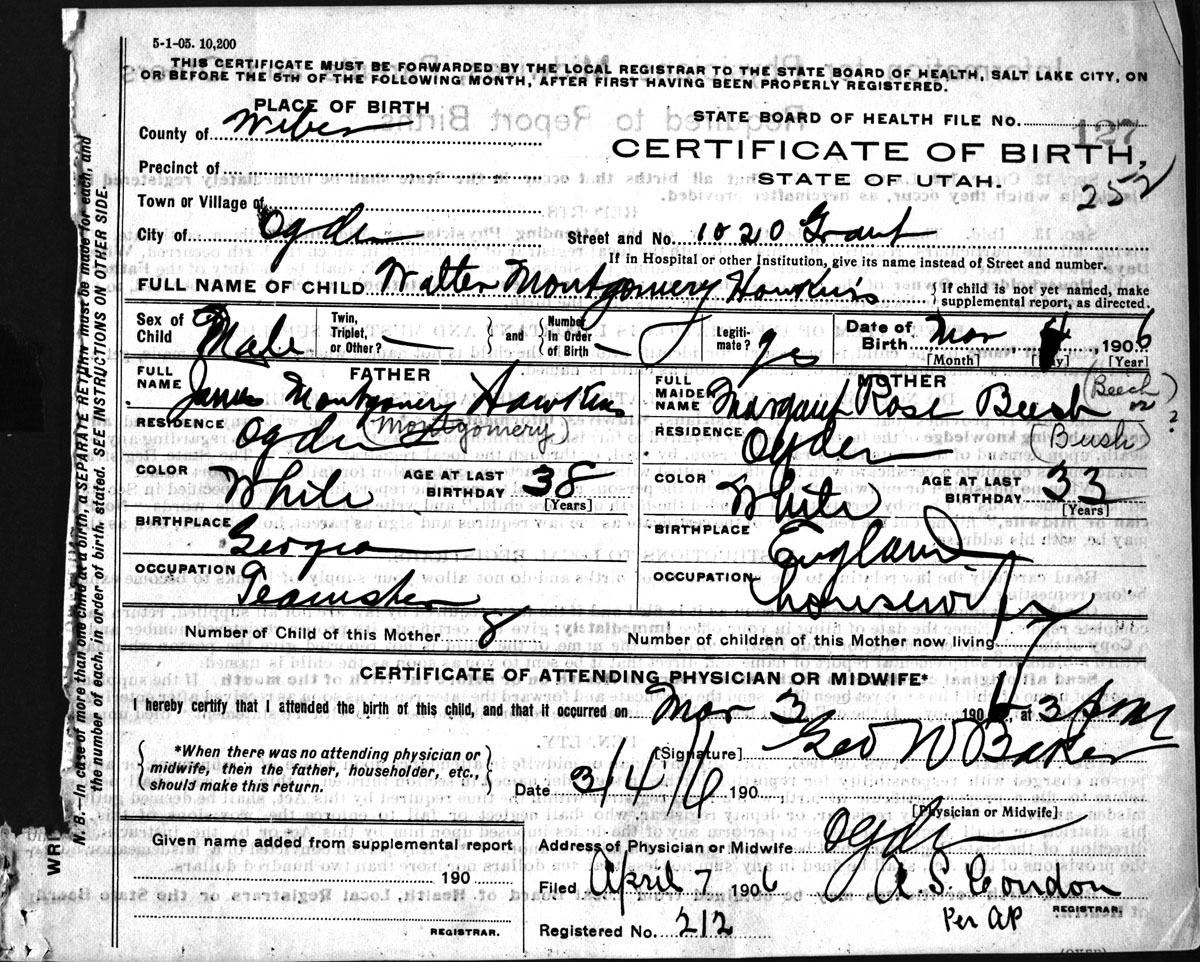 5-1-05. 10,200
THIS CERTIFICATE MUST BE FORWARDED BY THE LOCAL REGISTRAR TO THE STATE BOARD OF HEALTH, SALT LAKE CITY, ON
OR BEFORE THE 5TH OF THE FOLLOWING MONTH, AFTER FIRST HAVING BEEN PROPERLY REGISTERED.
PLACE OF BIRTH
County of Weber
STATE BOARD OF HEALTH FILE NO. 127
CERTIFICATE OF BIRTH,
STATE OF UTAH.
252
Precinct of
Town or Village of
City of Ogden
Street and No. 1020 Grant
If in Hospital or other Institution, give its name instead of Street and number.
FULL NAME OF CHILD Walter Montgomery Hawkins
{ If child is not yet named, make
supplemental report, as directed.
Sex of Child Male
Twin, Triplet, or Other? —
and
Number in Order of Birth —
Legiti-mate? yes
Date of Birth Mar 4, 1906
[Month] [Day] [Year]
FATHER
FULL NAME James Montgomery Hawkins
(Montgomery)
RESIDENCE Ogden
COLOR White
AGE AT LAST BIRTHDAY 38
[Years]
BIRTHPLACE Georgia
OCCUPATION Teamster
MOTHER
FULL MAIDEN NAME Margaret Rose Beesh
(Beech or ?
(Bush)
RESIDENCE Ogden
COLOR White
AGE AT LAST BIRTHDAY 33
[Years]
BIRTHPLACE England
OCCUPATION housewife
Number of Child of this Mother 8
Number of children of this Mother now living 7
CERTIFICATE OF ATTENDING PHYSICIAN OR MIDWIFE*
I hereby certify that I attended the birth of this child, and that it occurred on Mar 3 1906, at 3 Am
*When there was no attending physician or
midwife, then the father, householder, etc.,
should make this return.
[Signature] Geo W Baker
Date 3/4/6 190
[Physician or Midwife]
Given name added from supplemental report
190
REGISTRAR.
Address of Physician or Midwife Ogden
Filed April 7 1906
A. S. Condon
REGISTRAR.
Per AP
Registered No. 212
N. B.—In case of more than one child at a birth, a SEPARATE RETURN must be made for each, and
the number of each, in order of birth, stated. SEE INSTRUCTIONS ON OTHER SIDE.